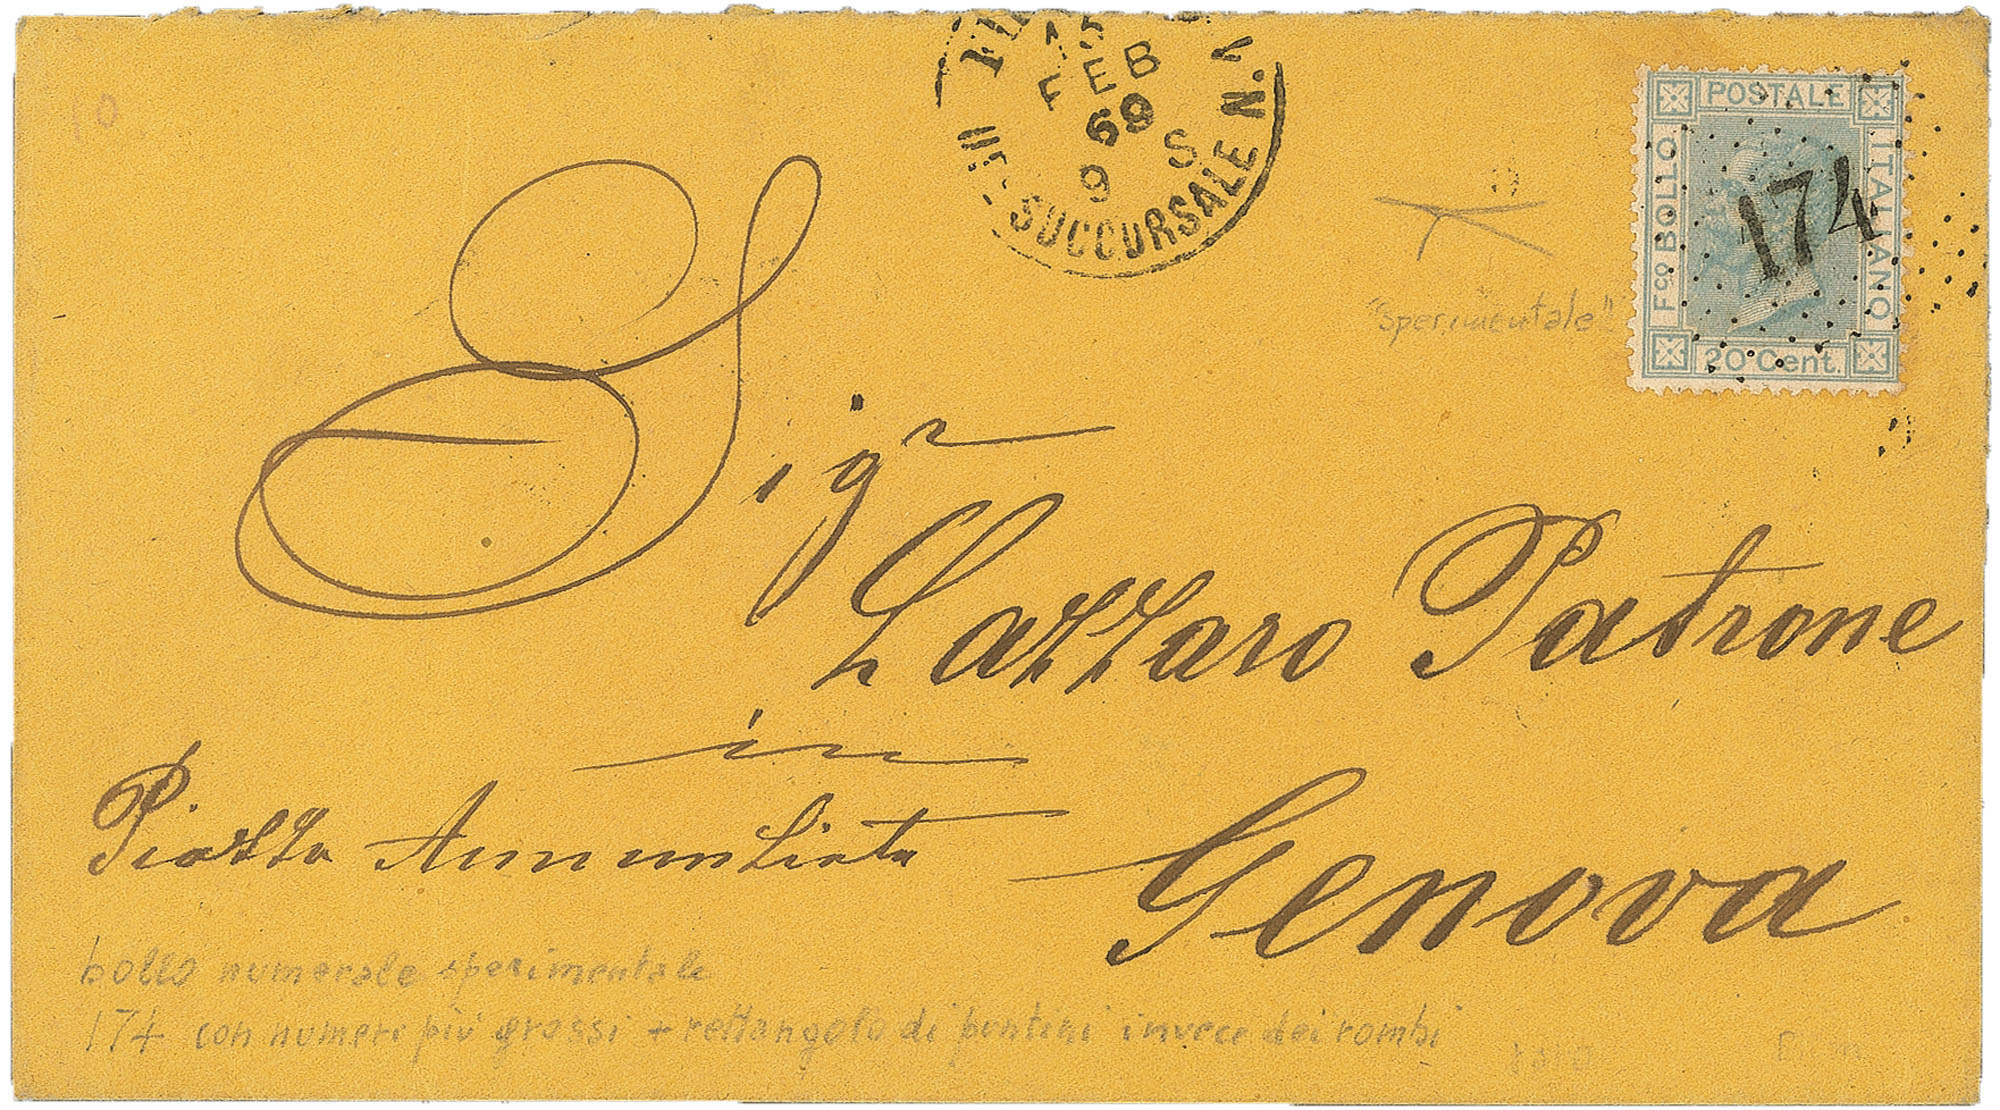 10
15
FEB
69
9 S
SUCCURSALE N. 1
POSTALE
Fco BOLLO
ITALIANO
20 Cent.
174
"sperimentale"
Sigr
Lazzaro Patrone
in
Piazza Annunziata
Genova
bollo numerale sperimentale
174 con numeri più grossi + rettangolo di puntini invece dei rombi
raro